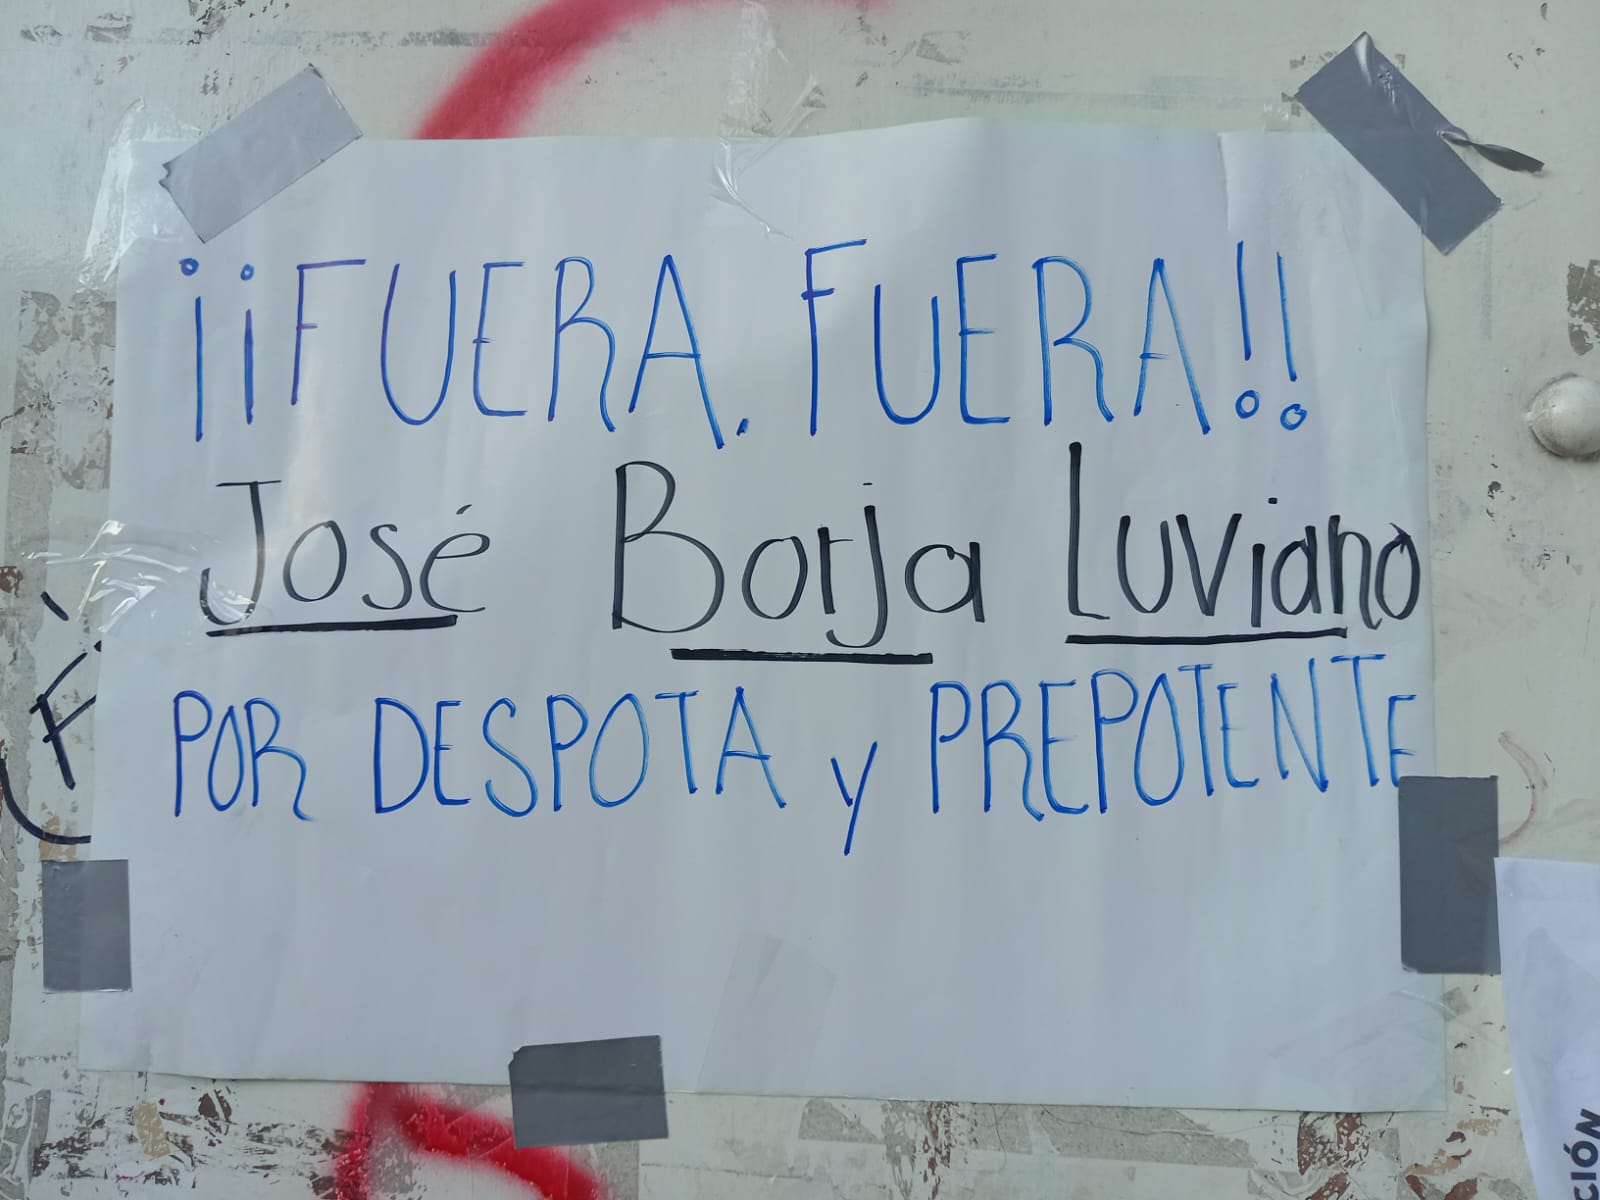 ¡¡FUERA. FUERA!!
José Borja Luviano
POR DESPOTA y PREPOTENTE
F
CIÓN